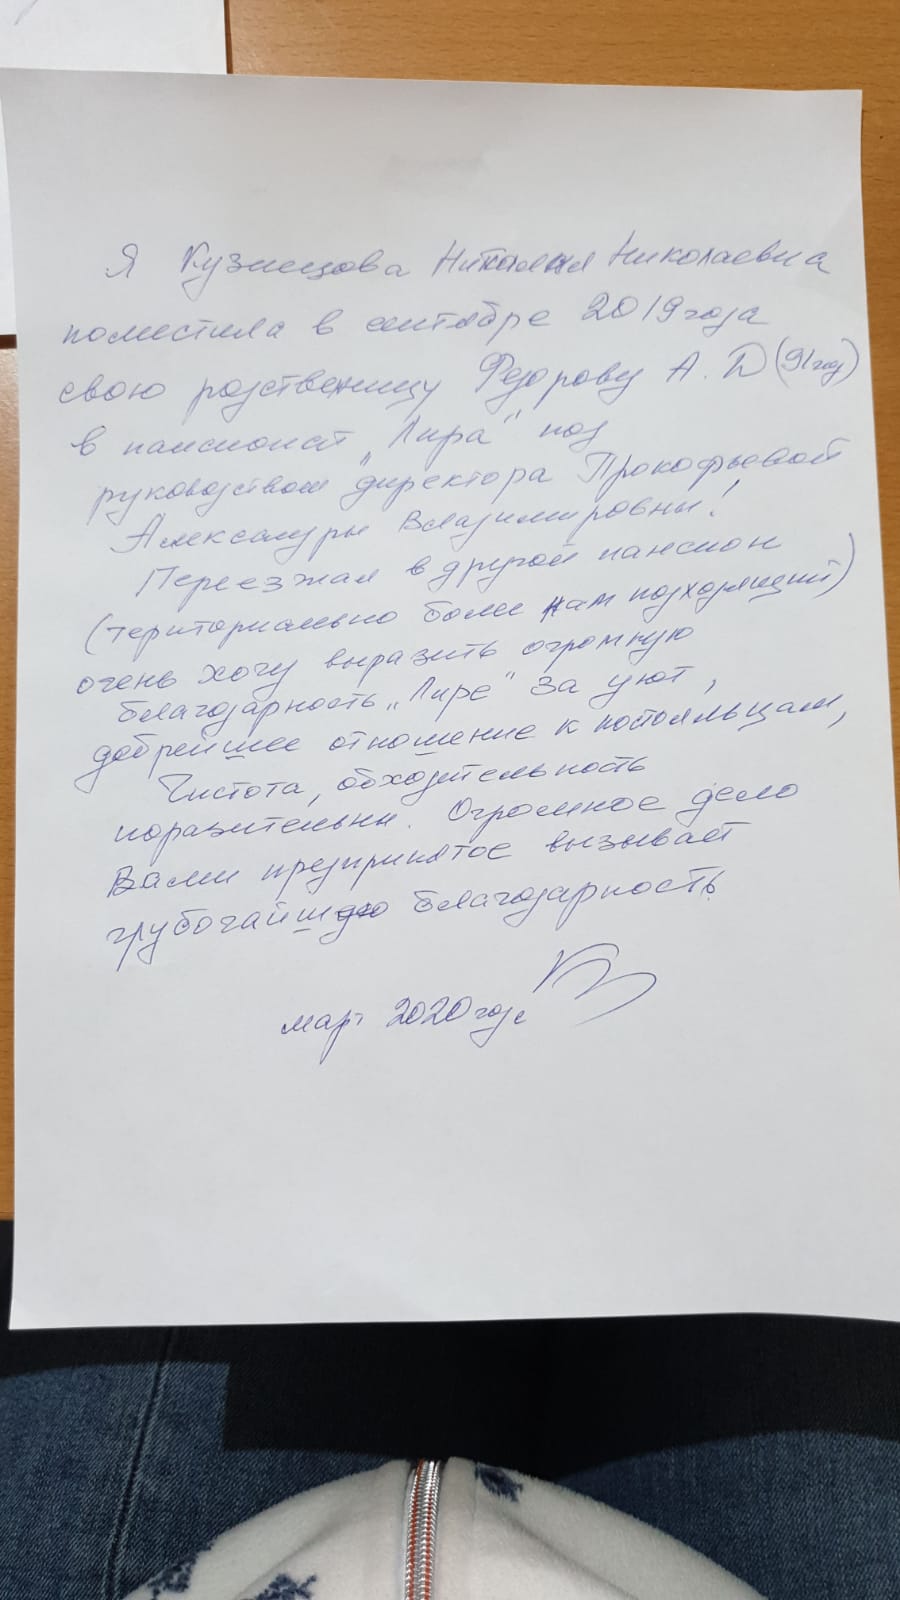 Я Кузнецова Наталья Николаевна
поместила в сентябре 2019 года
свою родственницу Федорову А. Д (91 год)
в пансионат „Лира" под
руководством директора Прокофьевой
Александры Владимировны!
Переезжая в другой пансион
(територмально более нам подходящий)
очень хочу выразить огромную
благодарность „Лире" за уют,
добрейшее отношение к постояльцам,
Чистота, обходительность
поразительны. Огромное дело
Вами предпринятое вызывает
глубочайшую благодарность
март 2020 года